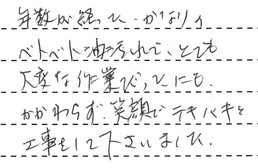 年数が経って、かなりの
ベトベト油汚れで、とても
大変な作業だったにも
かかわらず、笑顔でテキパキと
工事をして下さいました。